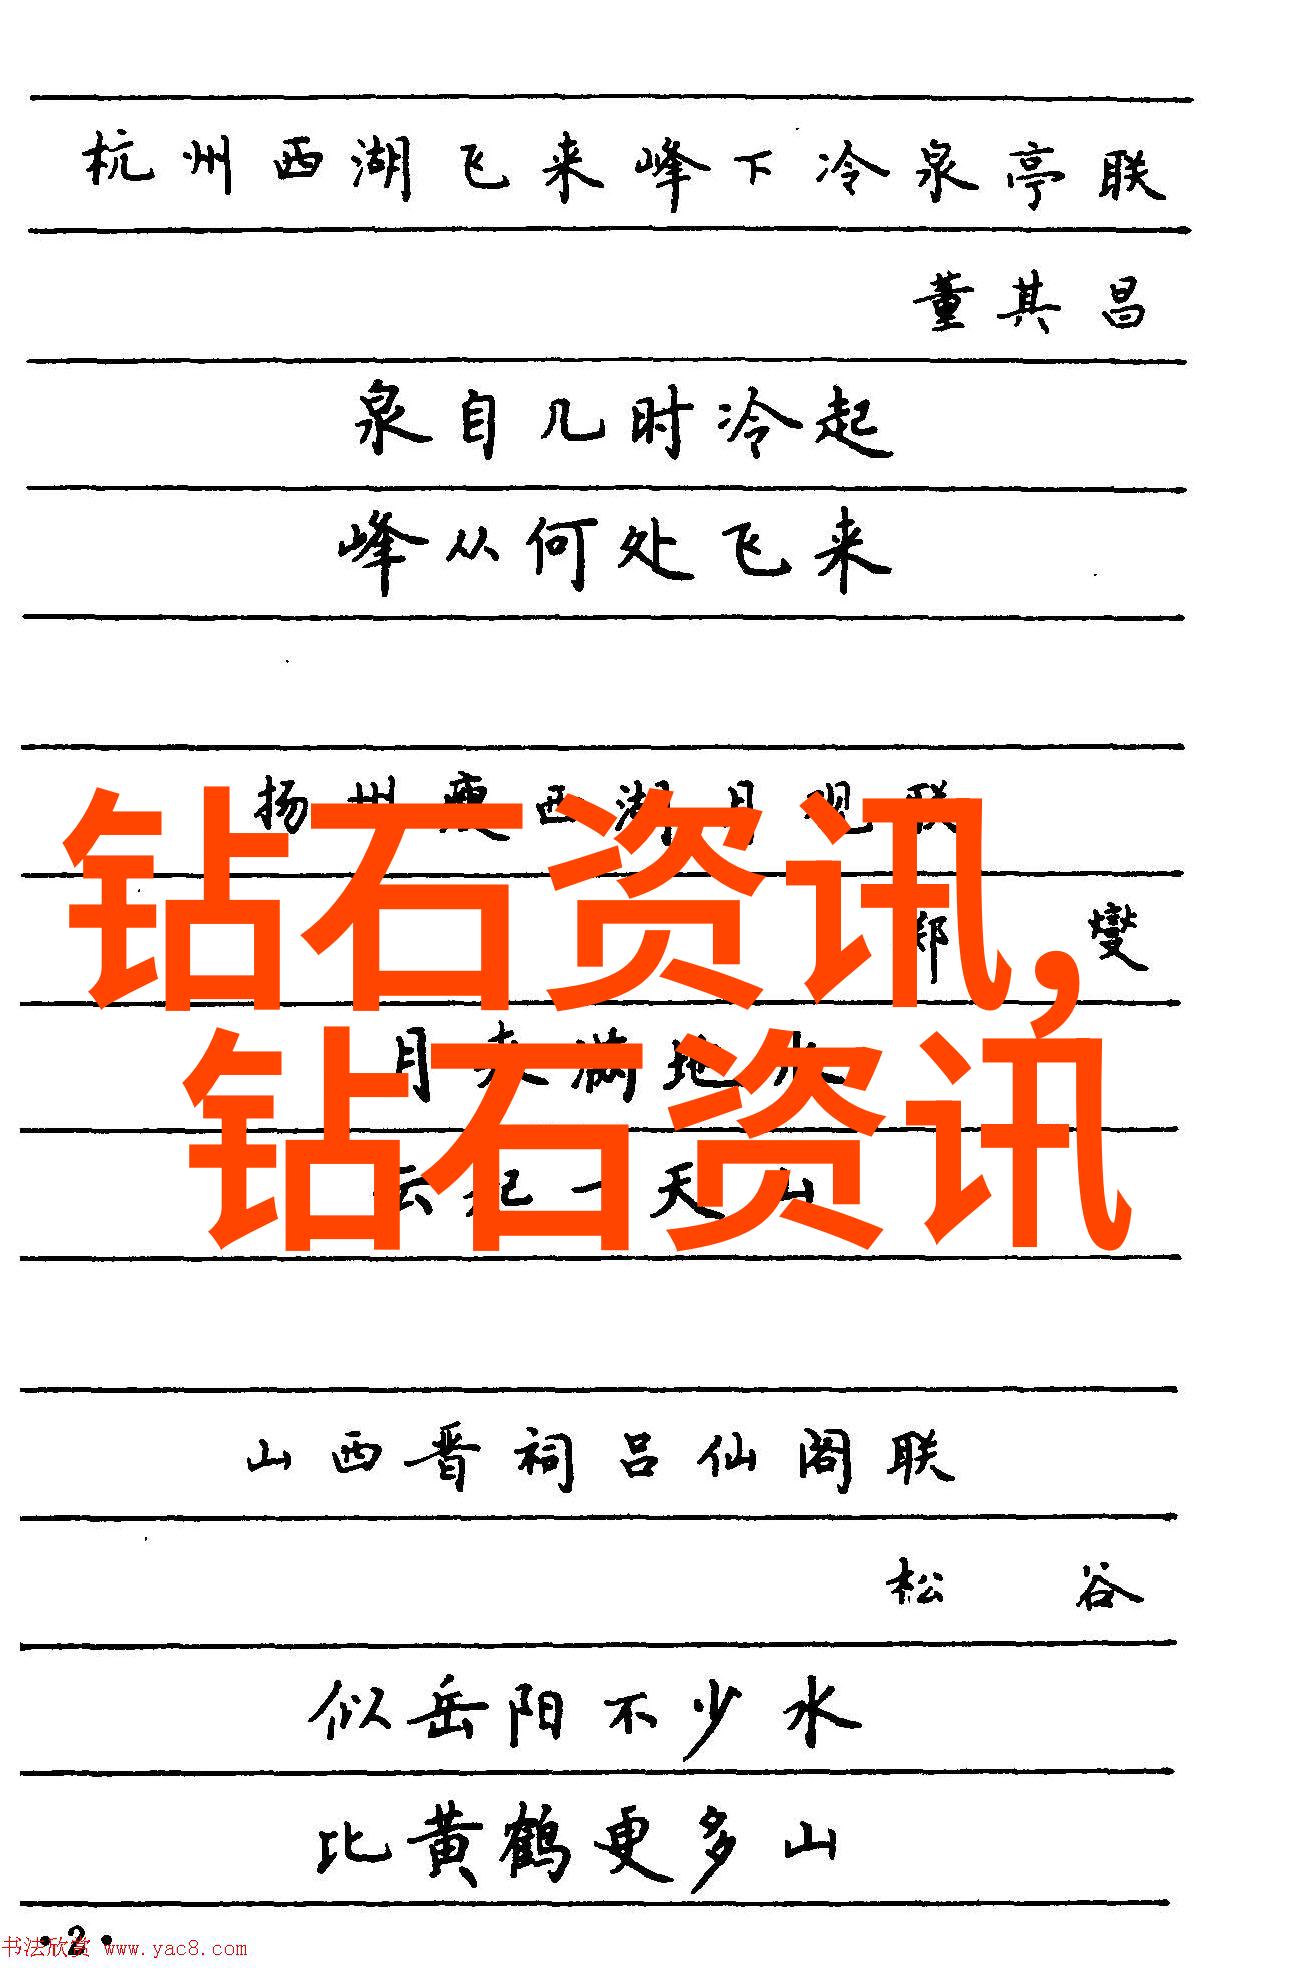 杭州西湖飞来峰下冷泉亭联
董其昌
泉自几时冷起
峰从何处飞来
扬州瘦西湖月观联
钻石资讯,
郑燮
月来满地水
钻石资讯
云起一天山
山西晋祠吕仙阁联
松谷
似岳阳不少水
比黄鹤更多山
·2·
书法欣赏 www.yac8.com